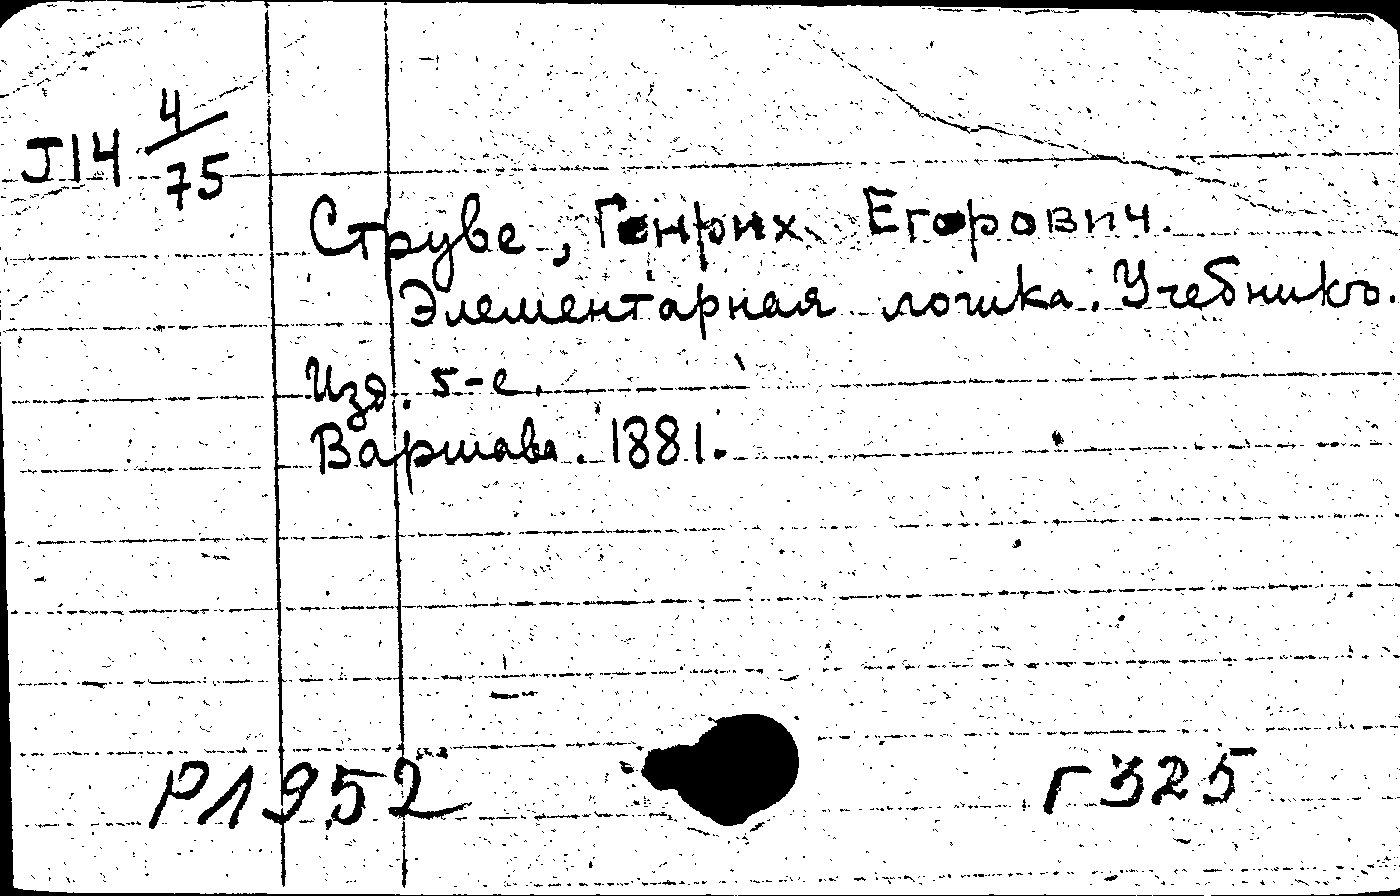 J14 4/75
Струве, Генрих Егорович.
Элементарная логика. Учебникъ.
Изд. 5-е.
Варшава. 1881.
Р1952
Г325